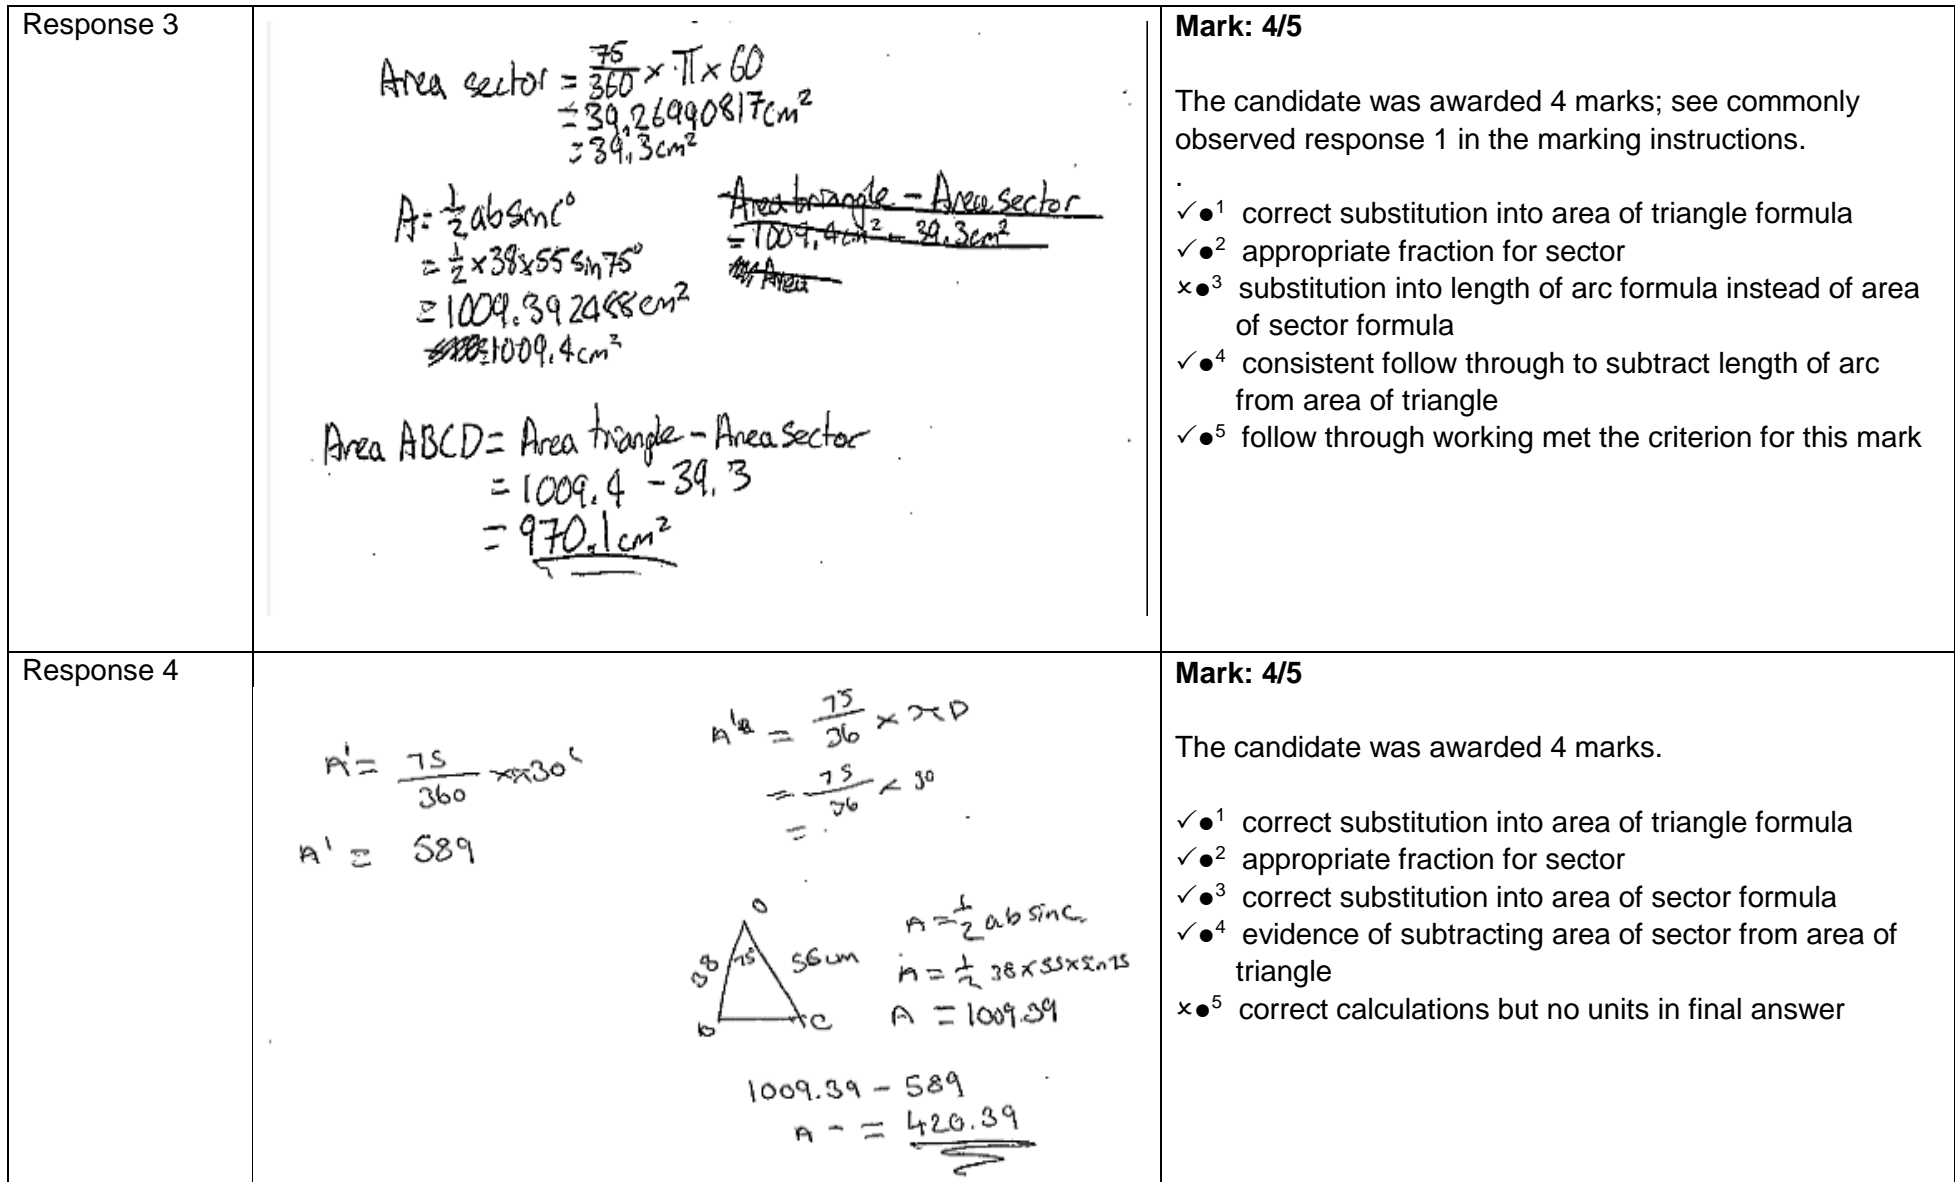 Response 3
Area sector = 75/360 × π × 60
= 39,26990817cm²
= 39,3cm²
A = ½ab sin C°
= ½ × 38 × 55 sin 75°
= 1009.392488cm²
1009.4cm²
Area triangle - Area sector
= 1009,4cm² - 39.3cm²
Area
Area ABCD = Area triangle - Area sector
= 1009.4 - 39.3
= 970.1cm²
Mark: 4/5
The candidate was awarded 4 marks; see commonly
observed response 1 in the marking instructions.
.
✓●¹ correct substitution into area of triangle formula
✓●² appropriate fraction for sector
×●³ substitution into length of arc formula instead of area
of sector formula
✓●⁴ consistent follow through to subtract length of arc
from area of triangle
✓●⁵ follow through working met the criterion for this mark
Response 4
A' = 75/360 × π30²
A' = 589
A' = 75/36 × πD
= 75/36 × 30
= .
O
38
75
56cm
b
C
A = ½ab sin C.
A = ½ 38 × 55 × Sin 75
A = 1009.39
1009.39 - 589
A - = 420.39
Mark: 4/5
The candidate was awarded 4 marks.
✓●¹ correct substitution into area of triangle formula
✓●² appropriate fraction for sector
✓●³ correct substitution into area of sector formula
✓●⁴ evidence of subtracting area of sector from area of
triangle
×●⁵ correct calculations but no units in final answer